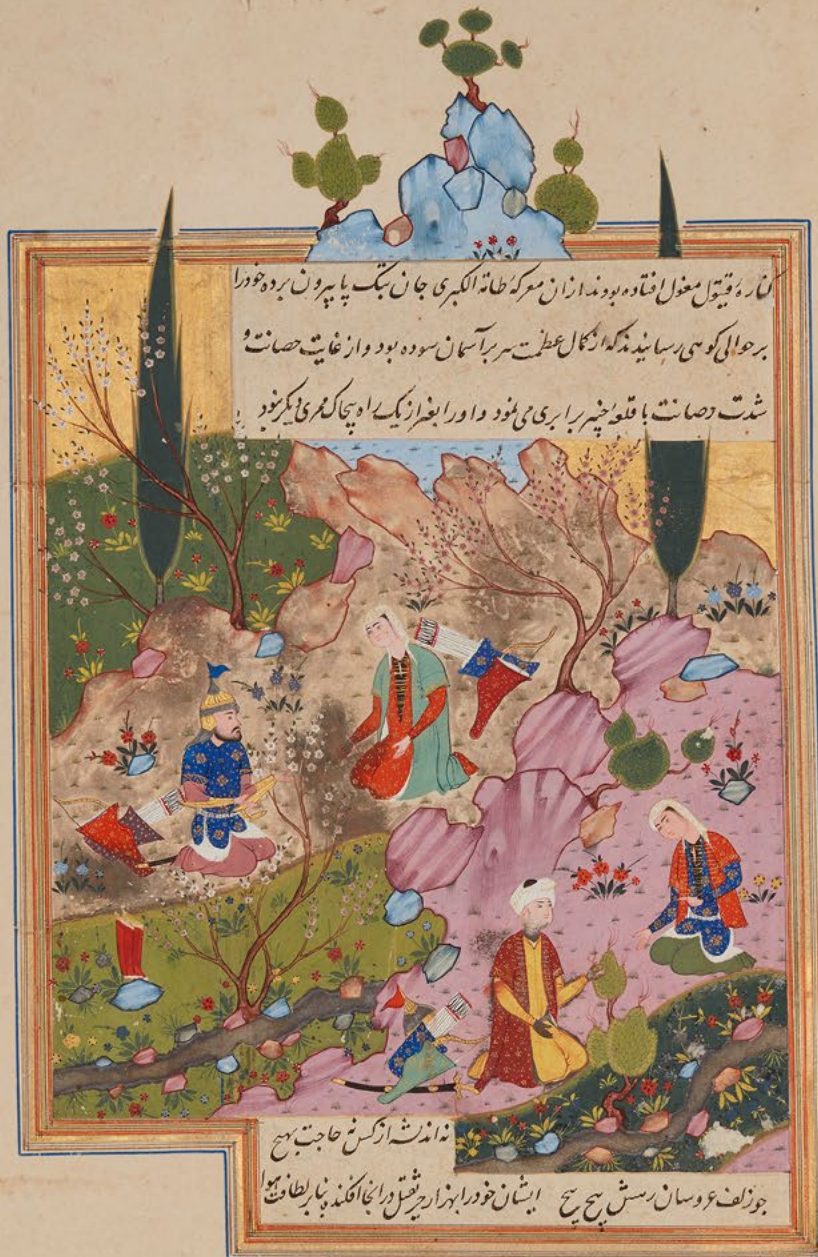 کنارهٔ قیتول مغول افتاده بودند ازان معرکهٔ طامة الکبری جان بتک پا بیرون برده خودرا
بر حوالی کوهی رسانیدند که از کمال عظمت سر بر آسمان سوده بود و از غایت حصانت و
شدت رصانت با قلعهٔ برابری می نمود و اورا بغیر از یک راه ممری دیگر نبود
نه اندیشه از کس نه حاجت بهیچ
چو زلف عروسان رهش پیچ پیچ ایشان خودرا بهزار جر ثقیل در انجا افکنده بنابر لطافت هوا